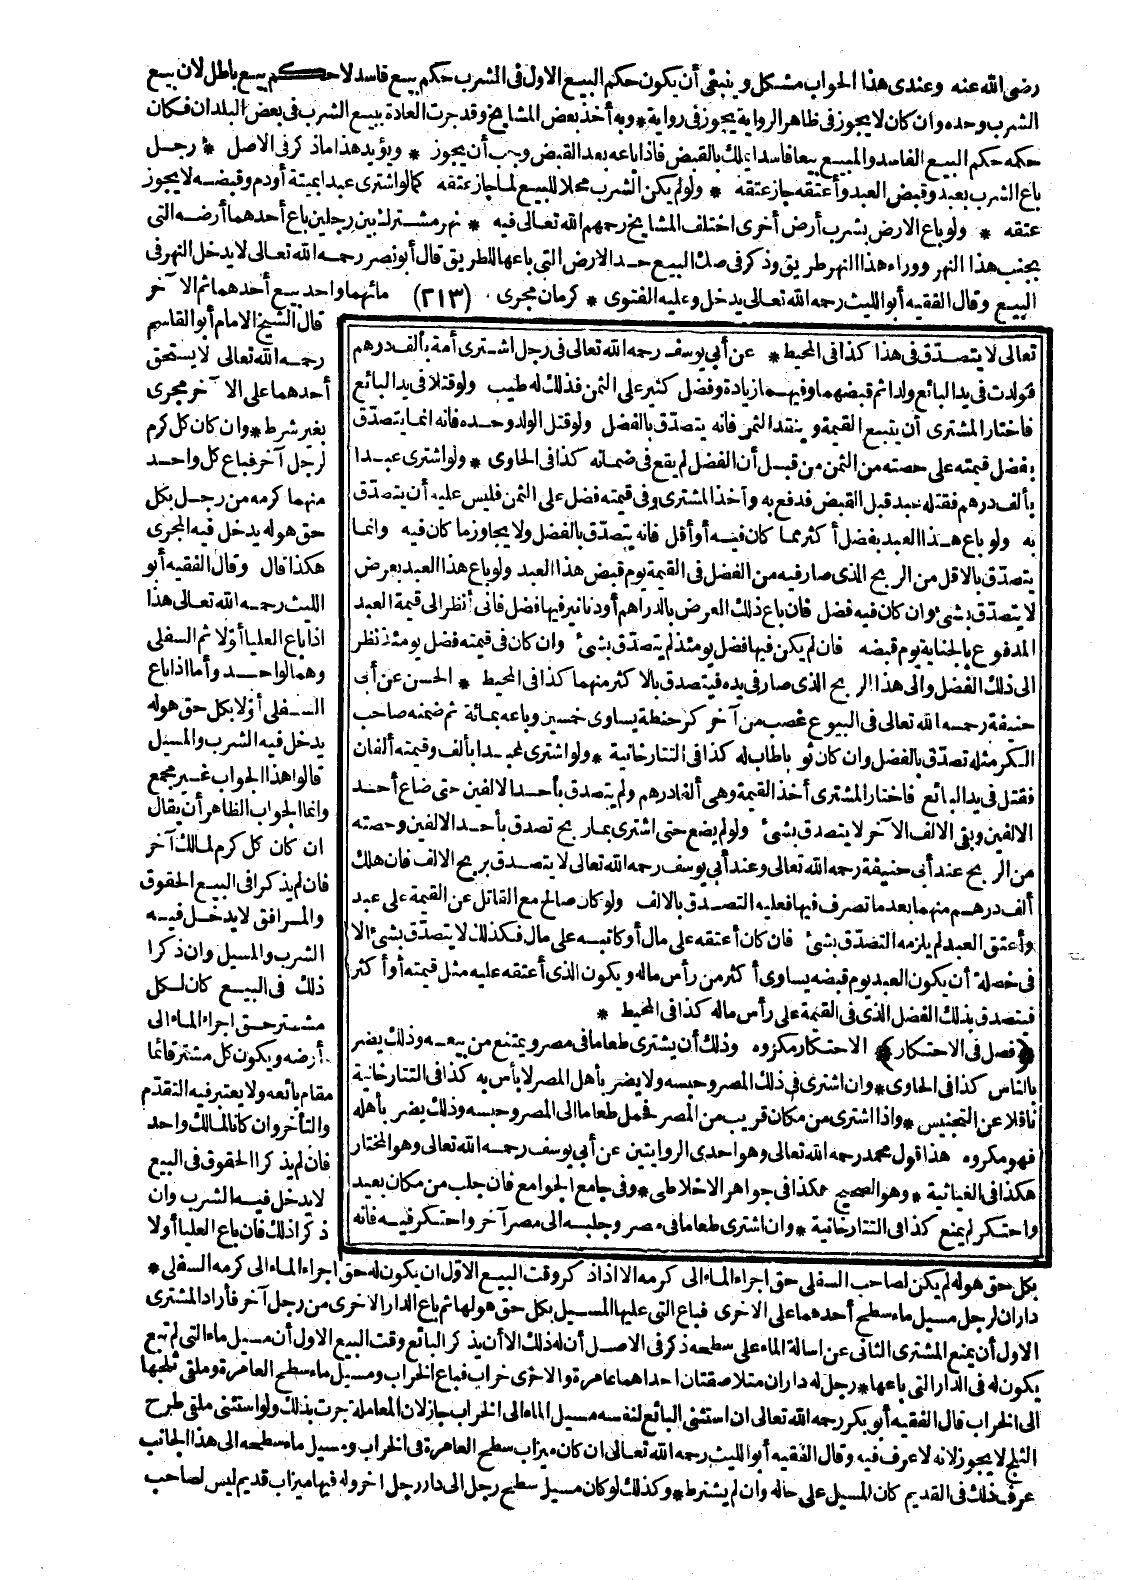 رضى الله عنه وعندى هذا الجواب مشكل وينبغى أن يكون حكم البيع الاول فى الشرب حكم بيع فاسد لا حكم بيع باطل لان بيع
الشرب وحده وان كان لا يجوز فى ظاهر الرواية يجوز فى رواية * وبه أخذ بعض المشايخ وقد جرت العادة ببيع الشرب فى بعض البلدان فكان
حكمه حكم البيع الفاسد والمبيع بيعا فاسدا يملك بالقبض فاذا باعه بعد القبض وجب أن يجوز * ويؤيد هذا ماذكر فى الاصل * رجل
باع الشرب بعبد وقبض العبد وأعتقه جاز عتقه * ولو لم يكن الشرب محلا للبيع لما جاز عتقه كما لو اشترى عبدا بميتة أودم وقبضه لا يجوز
عتقه * ولو باع الارض بشرب أرض أخرى اختلف المشايخ رحمهم الله تعالى فيه * نهر مشترك بين رجلين باع أحدهما أرضه التى
بجنب هذا النهر ووراء هذا النهر طريق وذكر فى صك البيع حد الارض التى باعها للطريق قال أبو نصر رحمه الله تعالى لا يدخل النهر فى
البيع وقال الفقيه أبو الليث رحمه الله تعالى يدخل وعليه الفتوى * كرمان مجرى (٢١٣) مائهما واحد بيع أحدهما ثم الآخر
قال الشيخ الامام أبو القاسم
رحمه الله تعالى لا يستحق
أحدهما على الآخر مجرى
بغير شرط * وان كان كل كرم
لرجل آخر فباع كل واحد
منهما كرمه من رجل بكل
حق هوله يدخل فيه المجرى
هكذا قال وقال الفقيه أبو
الليث رحمه الله تعالى هذا
اذا باع العليا أولا ثم السفلى
وهما لواحد وأما اذا باع
السفلى أولا بكل حق هوله
يدخل فيه الشرب والمسيل
قالوا هذا الجواب غير مجمع
وانما الجواب الظاهر أن يقال
ان كان كل كرم لمالك آخر
فان لم يذكرا فى البيع الحقوق
والمرافق لا يدخل فيه
الشرب والمسيل وان ذكرا
ذلك فى البيع كان لكل
مشتر حق اجراء الماء الى
أرضه ويكون كل مشتر قائما
مقام بائعه ولا يعتبر فيه التقدّم
والتأخر وان كانا لمالك واحد
فان لم يذكرا الحقوق فى البيع
لا يدخل فيه الشرب وان
ذكرا ذلك فان باع العليا أولا
تعالى لا يتصدّق فى هذا كذا فى المحيط * عن أبى يوسف رحمه الله تعالى فى رجل اشترى أمة بألف درهم
فولدت فى يد البائع ولدا ثم قبضهما وفيهما زيادة وفضل كثير على الثمن فذلك له طيب ولو قتلا فى يد البائع
فاختار المشترى أن يتبع القيمة وينقد الثمن فانه يتصدّق بالفضل ولو قتل الولد وحده فانه انما يتصدّق
بفضل قيمته على حصته من الثمن من قبل أن الفضل لم يقع فى ضمانه كذا فى الحاوى * ولو اشترى عبدا
بألف درهم فقتله عبد قبل القبض فدفع به وأخذ المشترى وفى قيمته فضل على الثمن فليس عليه أن يتصدّق
به ولو باع هذا العبد بفضل أكثر مما كان فيه أو أقل فانه يتصدّق بالفضل ولا يجاوز ما كان فيه وانما
يتصدّق بالاقل من الربح الذى صار فيه من الفضل فى القيمة يوم قبض هذا العبد ولو باع هذا العبد بعرض
لا يتصدّق بشئ وان كان فيه فضل فان باع ذلك العرض بالدراهم أو دنانير فيها فضل فانى أنظر الى قيمة العبد
المدفوع بالجناية يوم قبضه فان لم يكن فيها فضل يومئذ لم يتصدّق بشئ وان كان فى قيمته فضل يومئذ نظر
الى ذلك الفضل والى هذا الربح الذى صار فى يده فيتصدق بالاكثر منهما كذا فى المحيط * الحسن عن أبى
حنيفة رحمه الله تعالى فى البيوع غصب من آخر كر حنطة يساوى خمسين وباعه بمائة ثم ضمنه صاحب
الكر مثله تصدّق بالفضل وان كان ثوبا طاب له كذا فى التتارخانية * ولو اشترى عبدا بألف وقيمته ألفان
فقتل فى يد البائع فاختار المشترى أخذ القيمة وهى ألفا درهم ولم يتصدق بأحد الالفين حتى ضاع أحد
الالفين وبقى الالف الآخر لا يتصدق بشئ ولو لم يضع حتى اشترى بما ربح تصدق بأحد الالفين وحصته
من الربح عند أبى حنيفة رحمه الله تعالى وعند أبى يوسف رحمه الله تعالى لا يتصدق بربح الالف فان هلك
ألف درهم منهما بعد ما تصرف فيها فعليه التصدق بالالف ولو كان صالح مع القاتل عن القيمة على عبد
وأعتق العبد لم يلزمه التصدّق بشئ فان كان أعتقه على مال أو كاتبه على مال فكذلك لا يتصدّق بشئ الا
فى خصلة أن يكون العبد يوم قبضه يساوى أكثر من رأس ماله ويكون الذى أعتقه عليه مثل قيمته أو أكثر
فيتصدق بذلك الفضل الذى فى القيمة على رأس ماله كذا فى المحيط *
﴿فصل فى الاحتكار﴾ الاحتكار مكروه وذلك أن يشترى طعاما فى مصر ويمتنع من بيعه وذلك يضر
بالناس كذا فى الحاوى * وان اشترى فى ذلك المصر وحبسه ولا يضر بأهل المصر لا بأس به كذا فى التتارخانية
ناقلا عن التجنيس * واذا اشترى من مكان قريب من المصر فحمل طعاما الى المصر وحبسه وذلك يضر بأهله
فهو مكروه هذا قول محمد رحمه الله تعالى وهو احدى الروايتين عن أبى يوسف رحمه الله تعالى وهو المختار
هكذا فى الغياثية * وهو الصحيح هكذا فى جواهر الاخلاطى * وفى جامع الجوامع فان جلب من مكان بعيد
واحتكر لم يمنع كذا فى التتارخانية * وان اشترى طعاما فى مصر وجلبه الى مصر آخر واحتكر فيه فانه
بكل حق هوله لم يكن لصاحب السفلى حق اجراء الماء الى كرمه الا اذا ذكر وقت البيع الاول ان يكون له حق اجراء الماء الى كرمه السفلى *
داران لرجل مسيل ماء سطح أحدهما على الاخرى فباع التى عليها المسيل بكل حق هولها ثم باع الدار الاخرى من رجل آخر فأراد المشترى
الاول أن يمنع المشترى الثانى عن اسالة الماء على سطحه ذكر فى الاصل أن له ذلك الا أن يذكر البائع وقت البيع الاول أن مسيل ماء التى لم تبع
يكون له فى الدار التى باعها * رجل له داران متلاصقتان احداهما عامرة والاخرى خراب فباع الخراب ومسيل ماء سطح العامرة وملقى ثلجها
الى الخراب قال الفقيه أبو بكر رحمه الله تعالى ان استثنى البائع لنفسه مسيل الماء الى الخراب جاز لان المعاملة جرت بذلك ولو استثنى ملقى طرح
الثلج لا يجوز لانه لا عرف فيه وقال الفقيه أبو الليث رحمه الله تعالى ان كان ميزاب سطح العامرة فى الخراب ومسيل ماء سطحه الى هذا الجانب
عرف ذلك فى القديم كان المسيل على حاله وان لم يشترط * وكذلك لو كان مسيل سطح رجل الى دار رجل اخر وله فيها ميزاب قديم ليس لصاحب